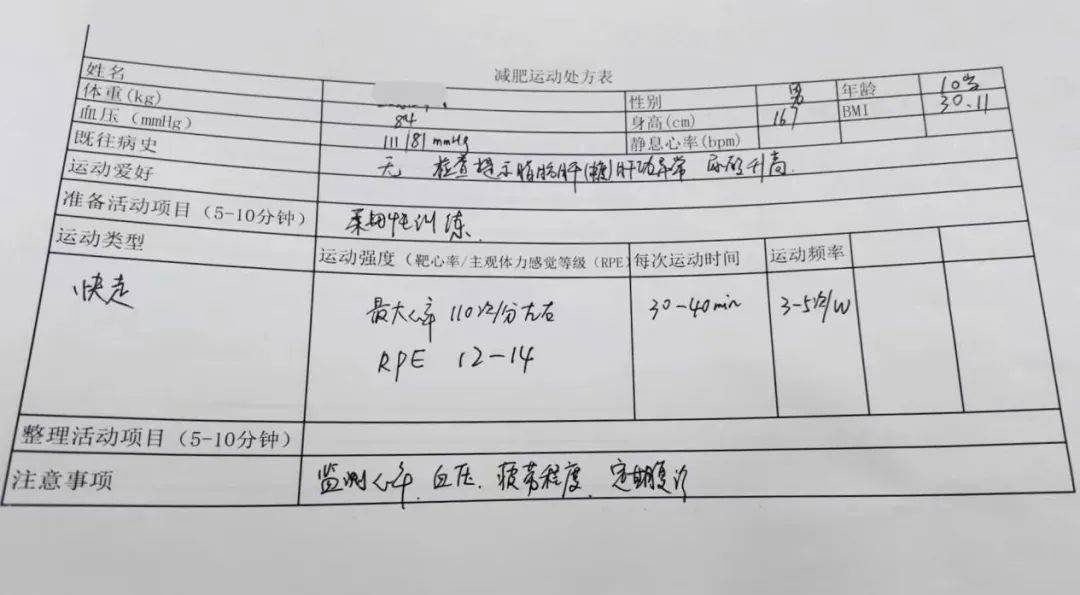 减肥运动处方表
姓名 性别 男 年龄 10岁
体重(kg) 84 身高(cm) 167 BMI 30.11
血压（mmHg） 111/81mmHg 静息心率(bpm)
既往病史 无 检查提示脂肪肝(轻)肝功异常 尿酸升高
运动爱好
准备活动项目（5-10分钟） 柔韧性训练
运动类型 运动强度（靶心率/主观体力感觉等级（RPE） 每次运动时间 运动频率
快走 最大心率 110次/分左右 30-40min 3-5次/W
RPE 12-14
整理活动项目（5-10分钟）
注意事项 监测心率、血压、疲劳程度、定期复诊